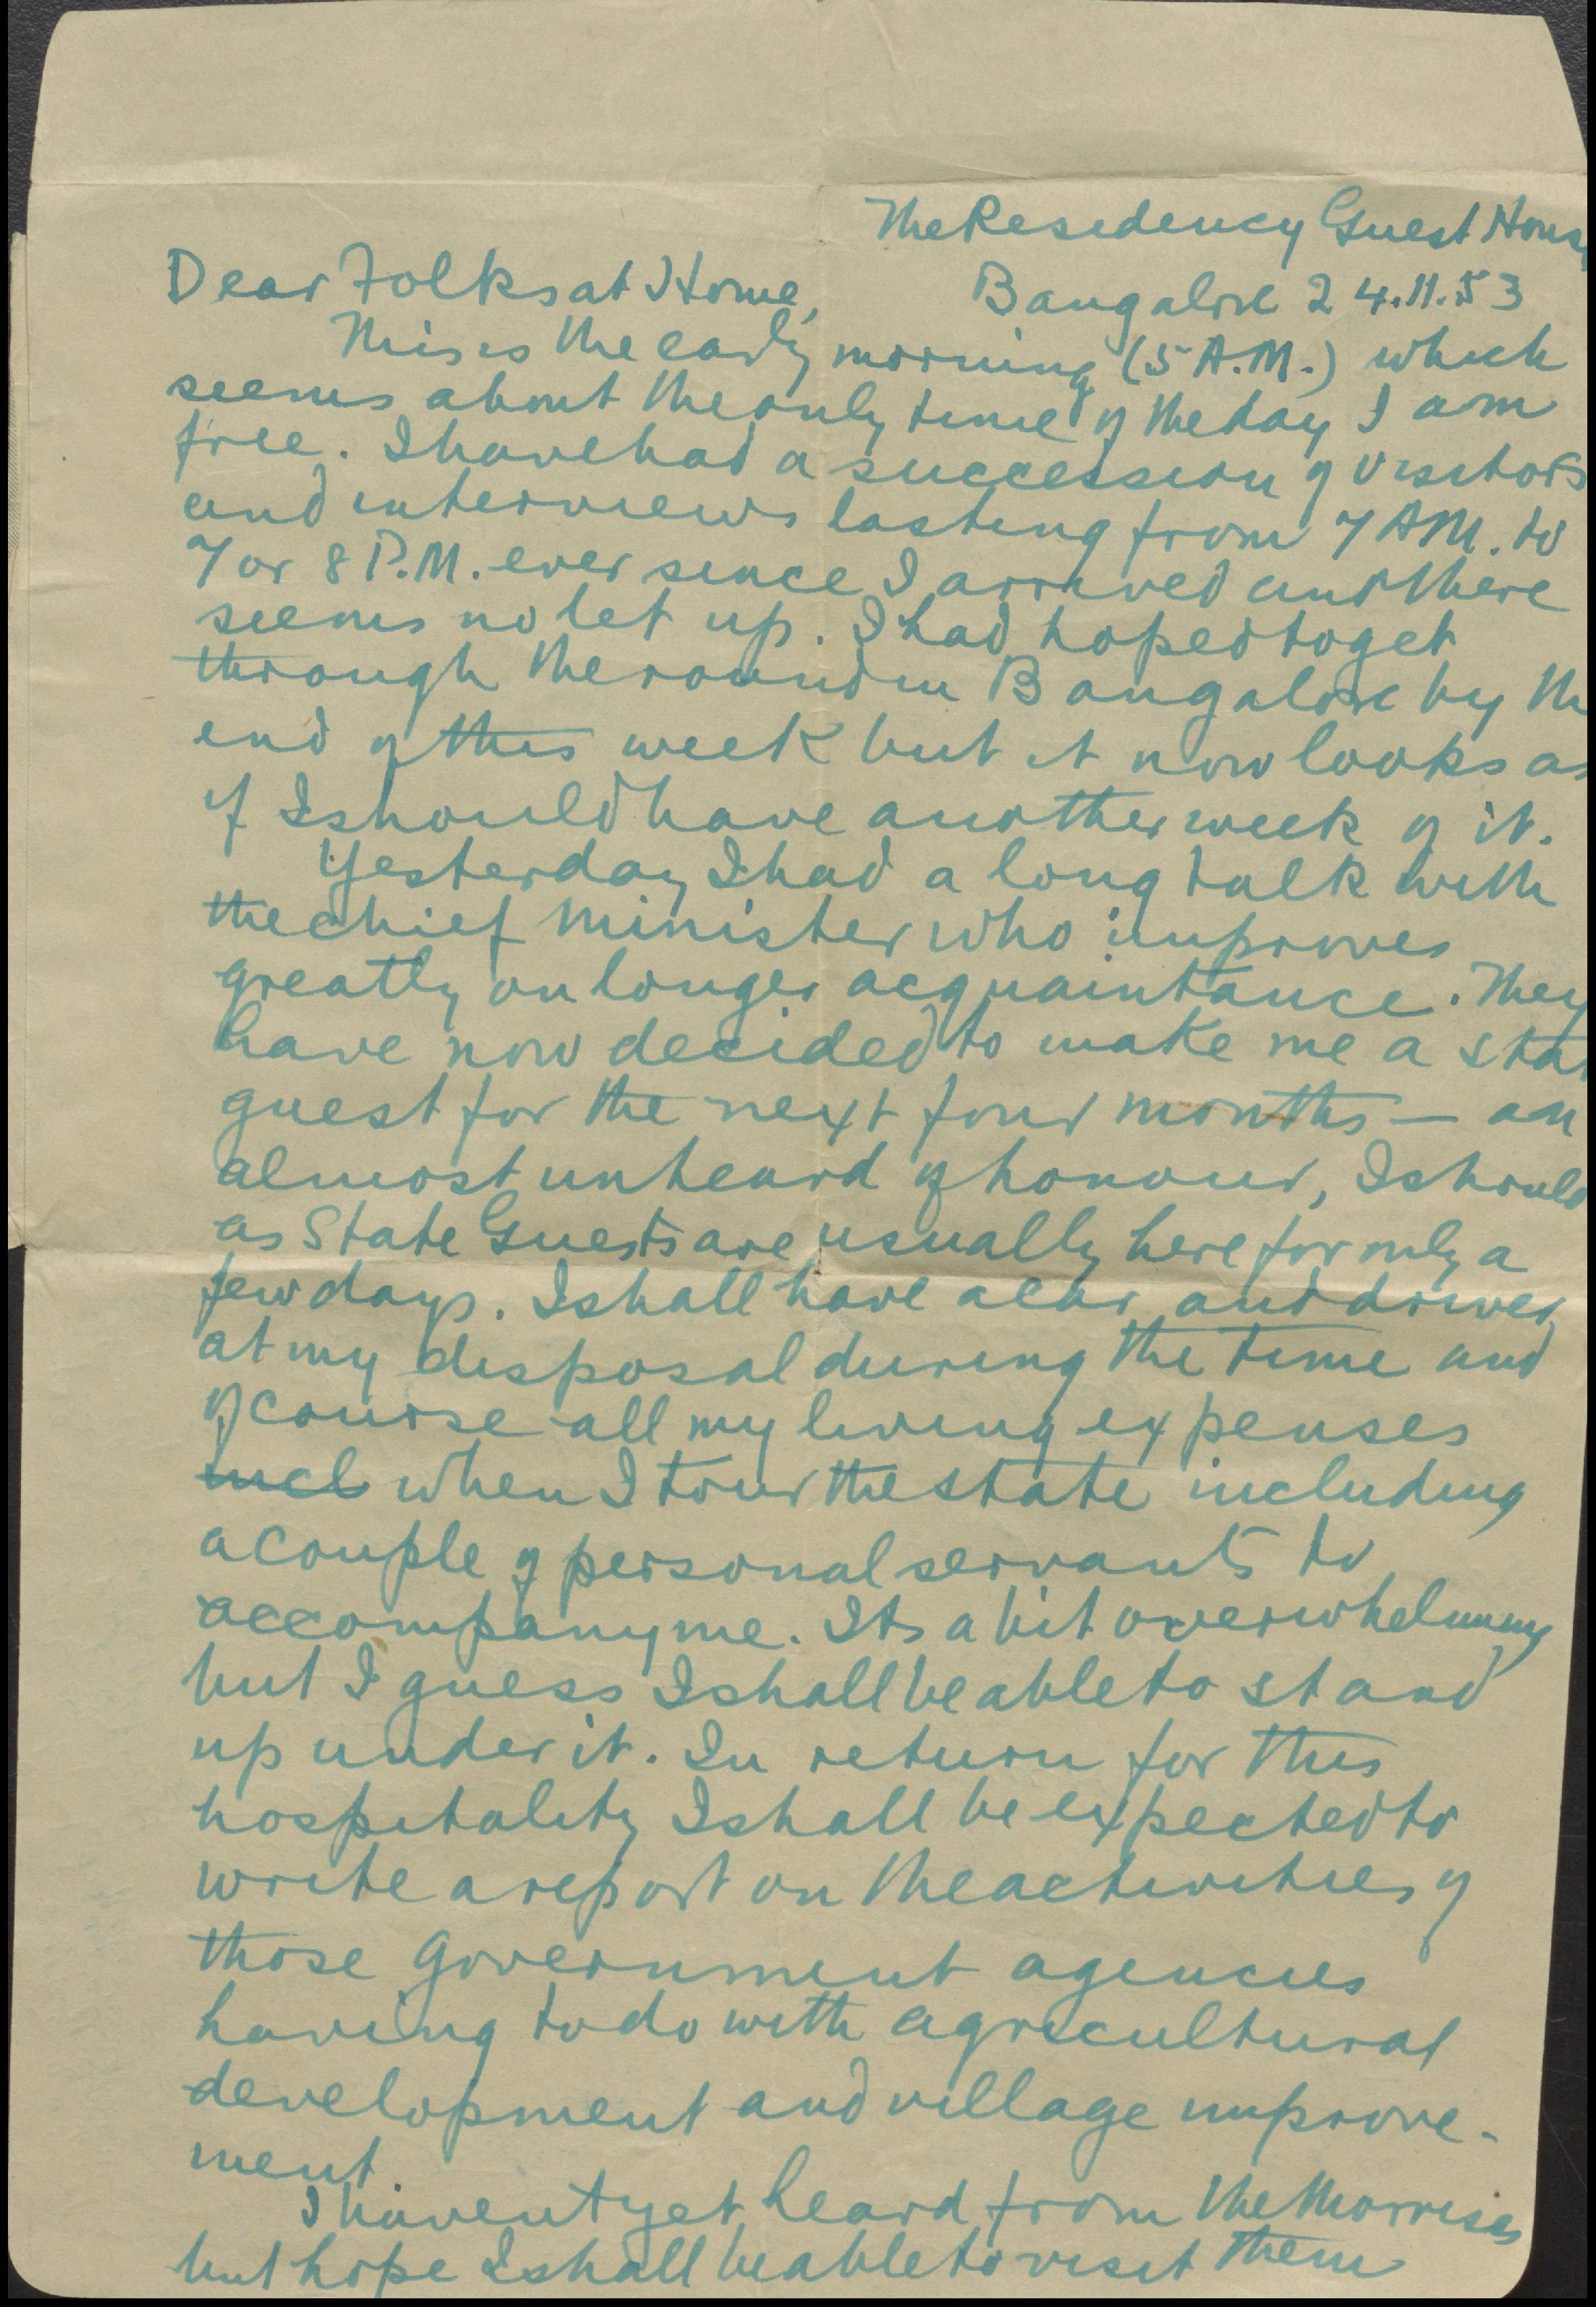 The Residency Guest Hous
Bangalore 24.11.53
Dear Folks at Home,
This is the early morning (5 A.M.) which
seems about the only time of the day I am
free. I have had a succession of visitors
and interviews lasting from 7 AM. to
7 or 8 P.M. ever since I arrived and there
seems no let up. I had hoped to get
through the round in Bangalore by th
end of this week but it now looks as
if I should have another week of it.
Yesterday I had a long talk with
the chief minister who improves
greatly on longer acquaintance. They
have now decided to make me a stat
guest for the next four months — an
almost unheard of honour, I should
as State Guests are usually here for only a
few days. I shall have a car and driver
at my disposal during the time and
of course all my living expenses
incl when I tour the state including
a couple of personal servants to
accompany me. Its a bit overwhelming
but I guess I shall be able to stand
up under it. In return for this
hospitality I shall be expected to
write a report on the activities of
those Government agencies
having to do with agricultural
development and village improve-
ment.
I havent yet heard from the Morrises
but hope I shall be able to visit them